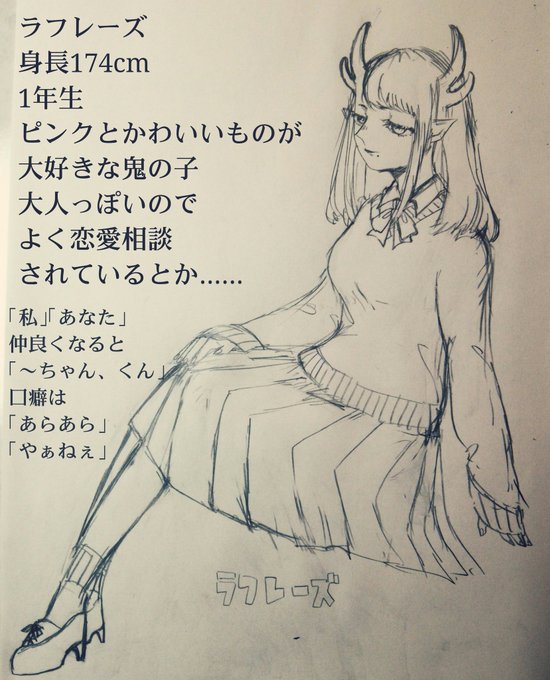 ラフレーズ
身長174cm
1年生
ピンクとかわいいものが
大好きな鬼の子
大人っぽいので
よく恋愛相談
されているとか……
「私」「あなた」
仲良くなると
「～ちゃん、くん」
口癖は
「あらあら」
「やぁねぇ」
ラフレーズ